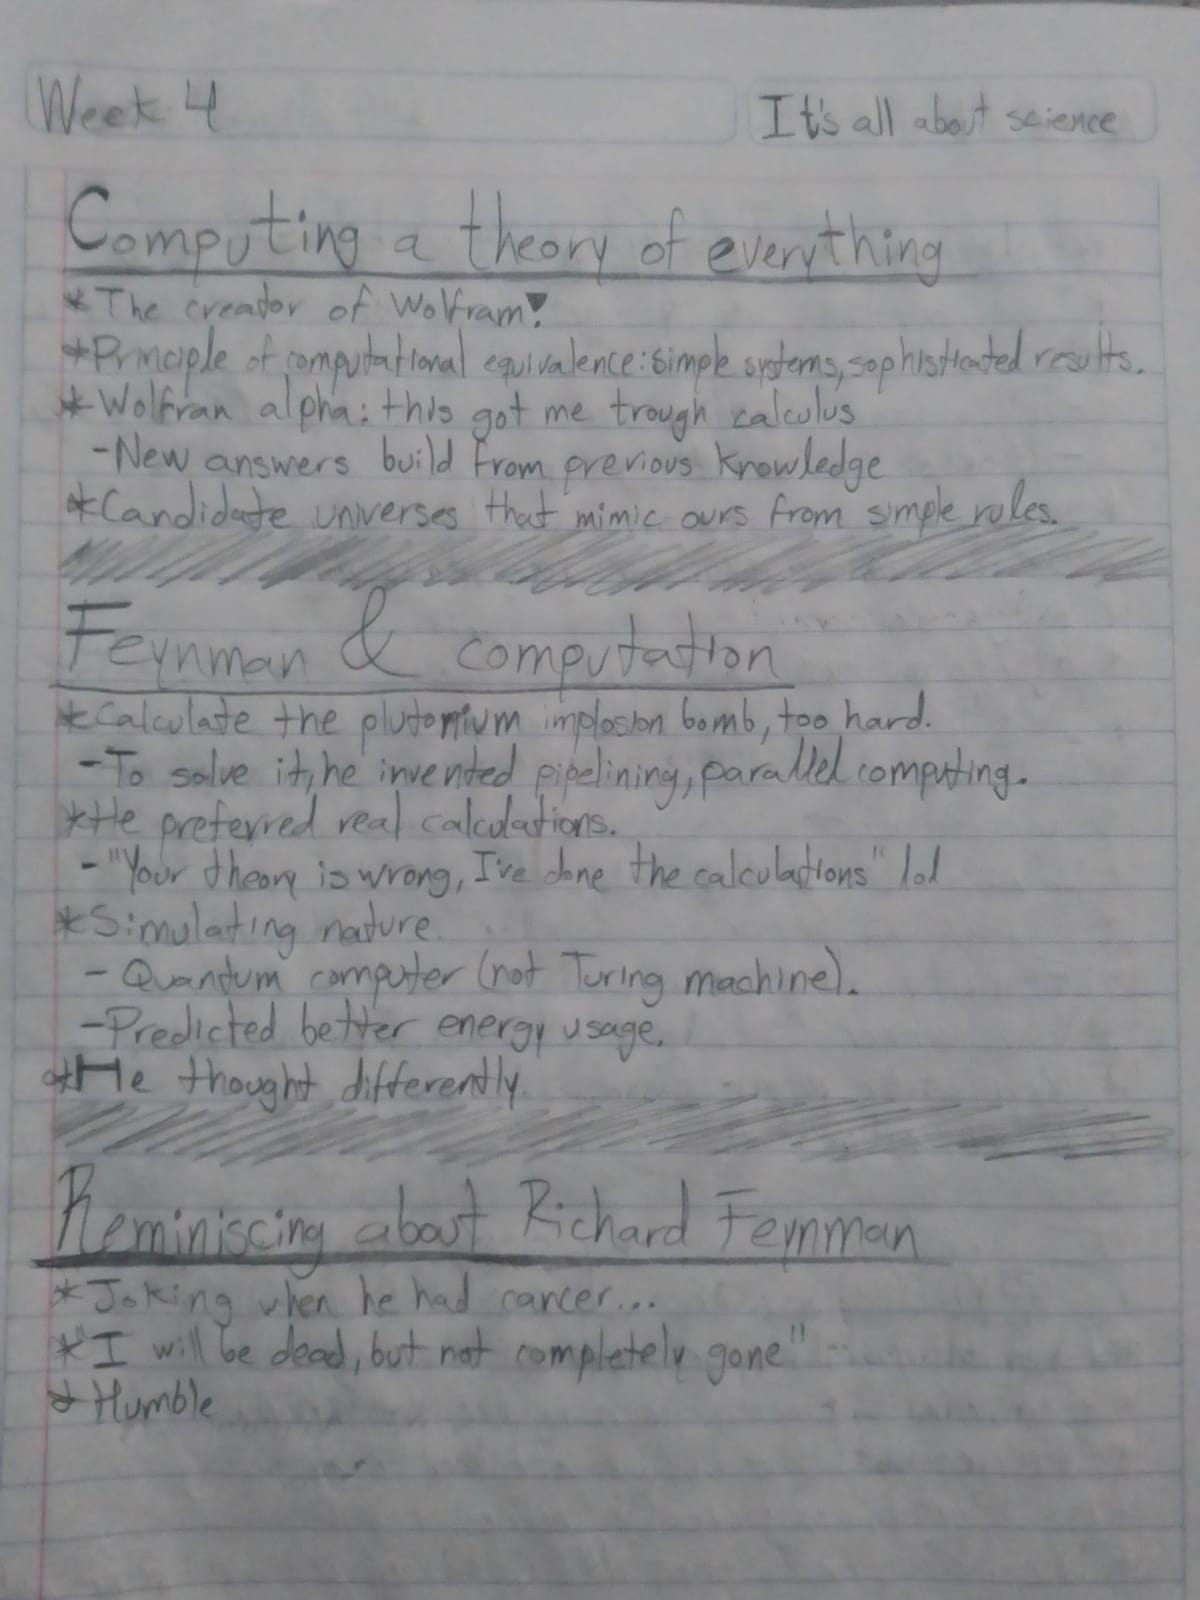 Week 4
It's all about science
Computing a theory of everything
* The creator of Wolfram!
* Principle of computational equivalence: simple systems, sophisticated results.
* Wolfran alpha: this got me trough calculus
- New answers build from previous knowledge
* Candidate universes that mimic ours from simple rules.
Feynman & computation
* Calculate the plutonium implosion bomb, too hard.
- To solve it, he invented pipelining, parallel computing.
* He preferred real calculations.
- "Your theory is wrong, I've done the calculations" lol
* Simulating nature.
- Quantum computer (not Turing machine).
- Predicted better energy usage.
* He thought differently.
Reminiscing about Richard Feynman
* Joking when he had cancer...
* "I will be dead, but not completely gone"
* Humble